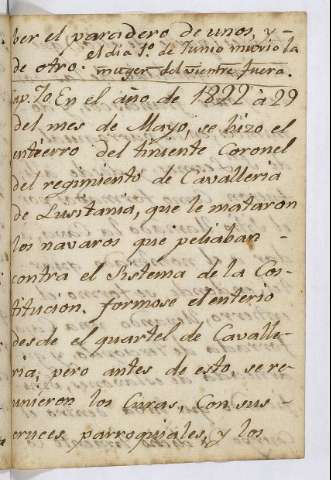 ber el paradero de unos, y -
de otro. el dia 1.º de Junio murio la
muger del vientre fuera.
En el año de 1822 à 29
del mes de Mayo, se hizo el
entierro del tiniente Coronel
del regimiento de Cavalleria
de Lusitania, que le mataron
los navaros que peliaban -
contra el Sistema de la Cos-
titucion. formose el enterio
desde el quartel de Cavalle-
ria, pero antes de esto, se re-
unieron los Curas, con sus
cruces parroquiales, y los